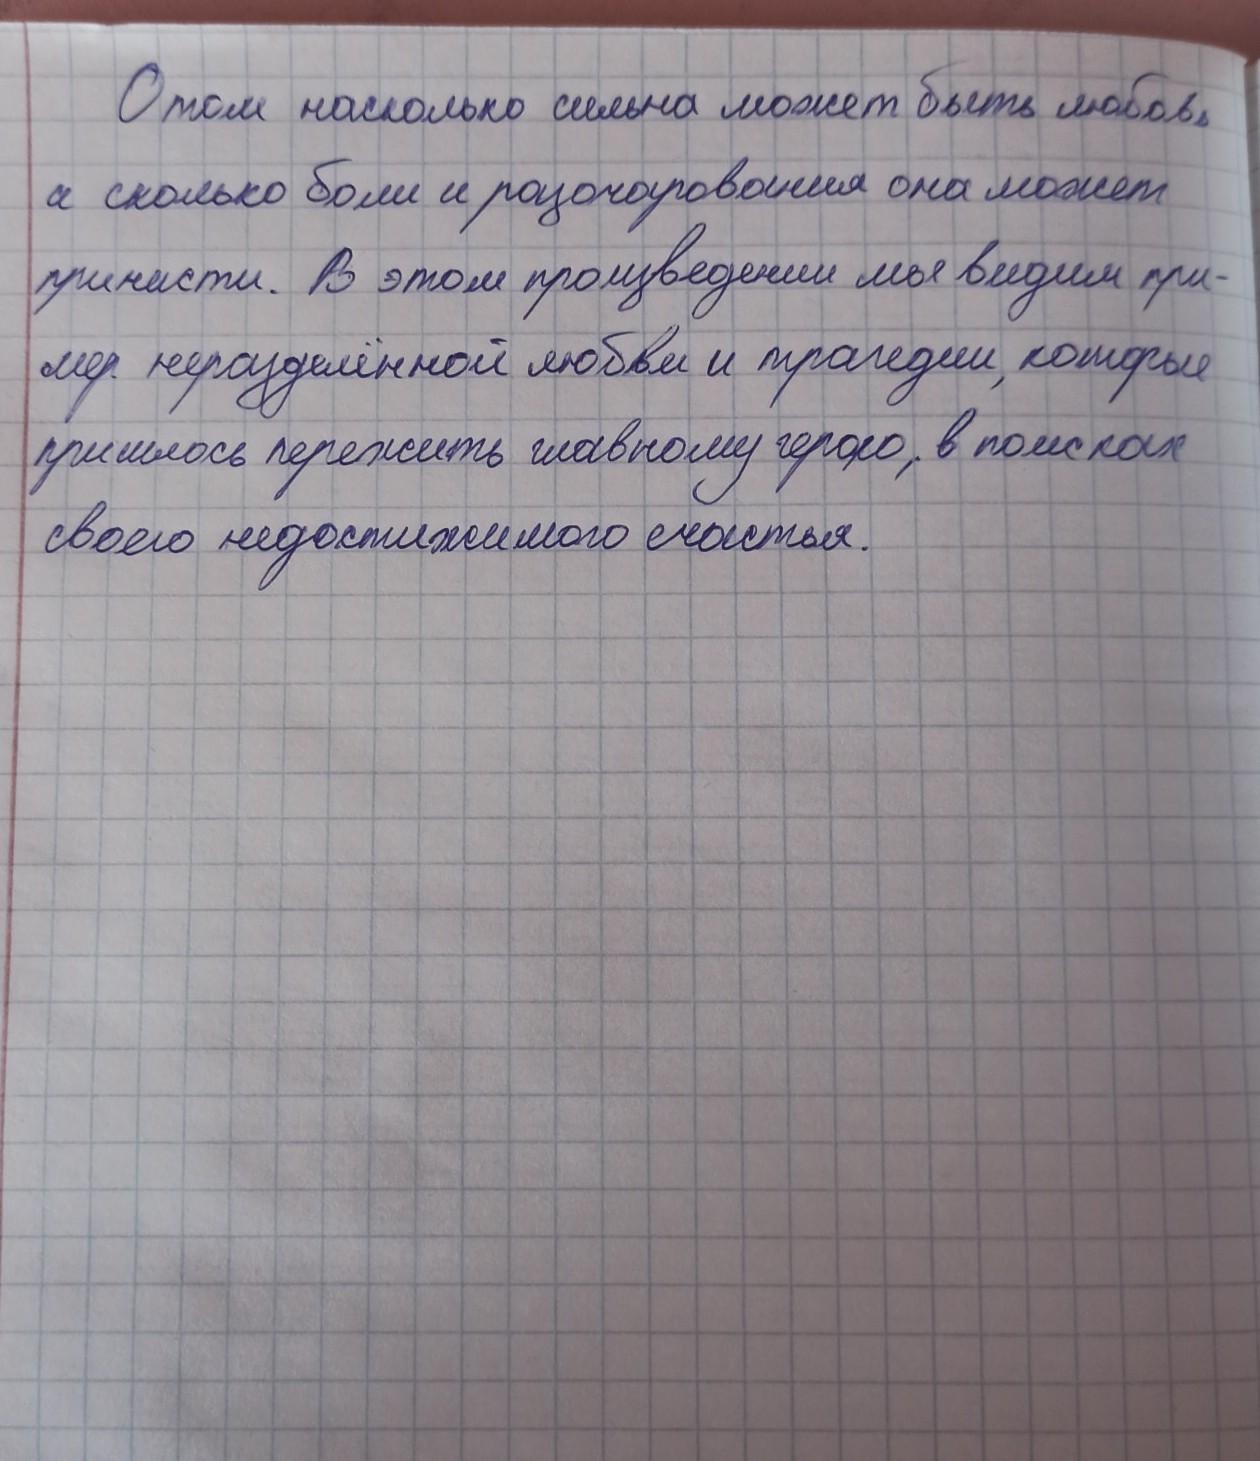 О том насколько сильна может быть любовь
и сколько боли и разочарования она может
принисти. В этом произведении мы видим при-
мер неразделённой любви и трагедии, которые
пришлось пережить главному герою, в поисках
своего недостижимого счастья.